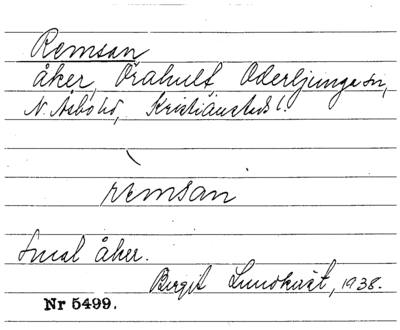 Remsan
åker, Örahult Oderljunga sn,
N. Åsbo hd, Kristianstads l.
remsan
Smal åker.
Birgit Lundkvist, 1938.
Nr 5499.